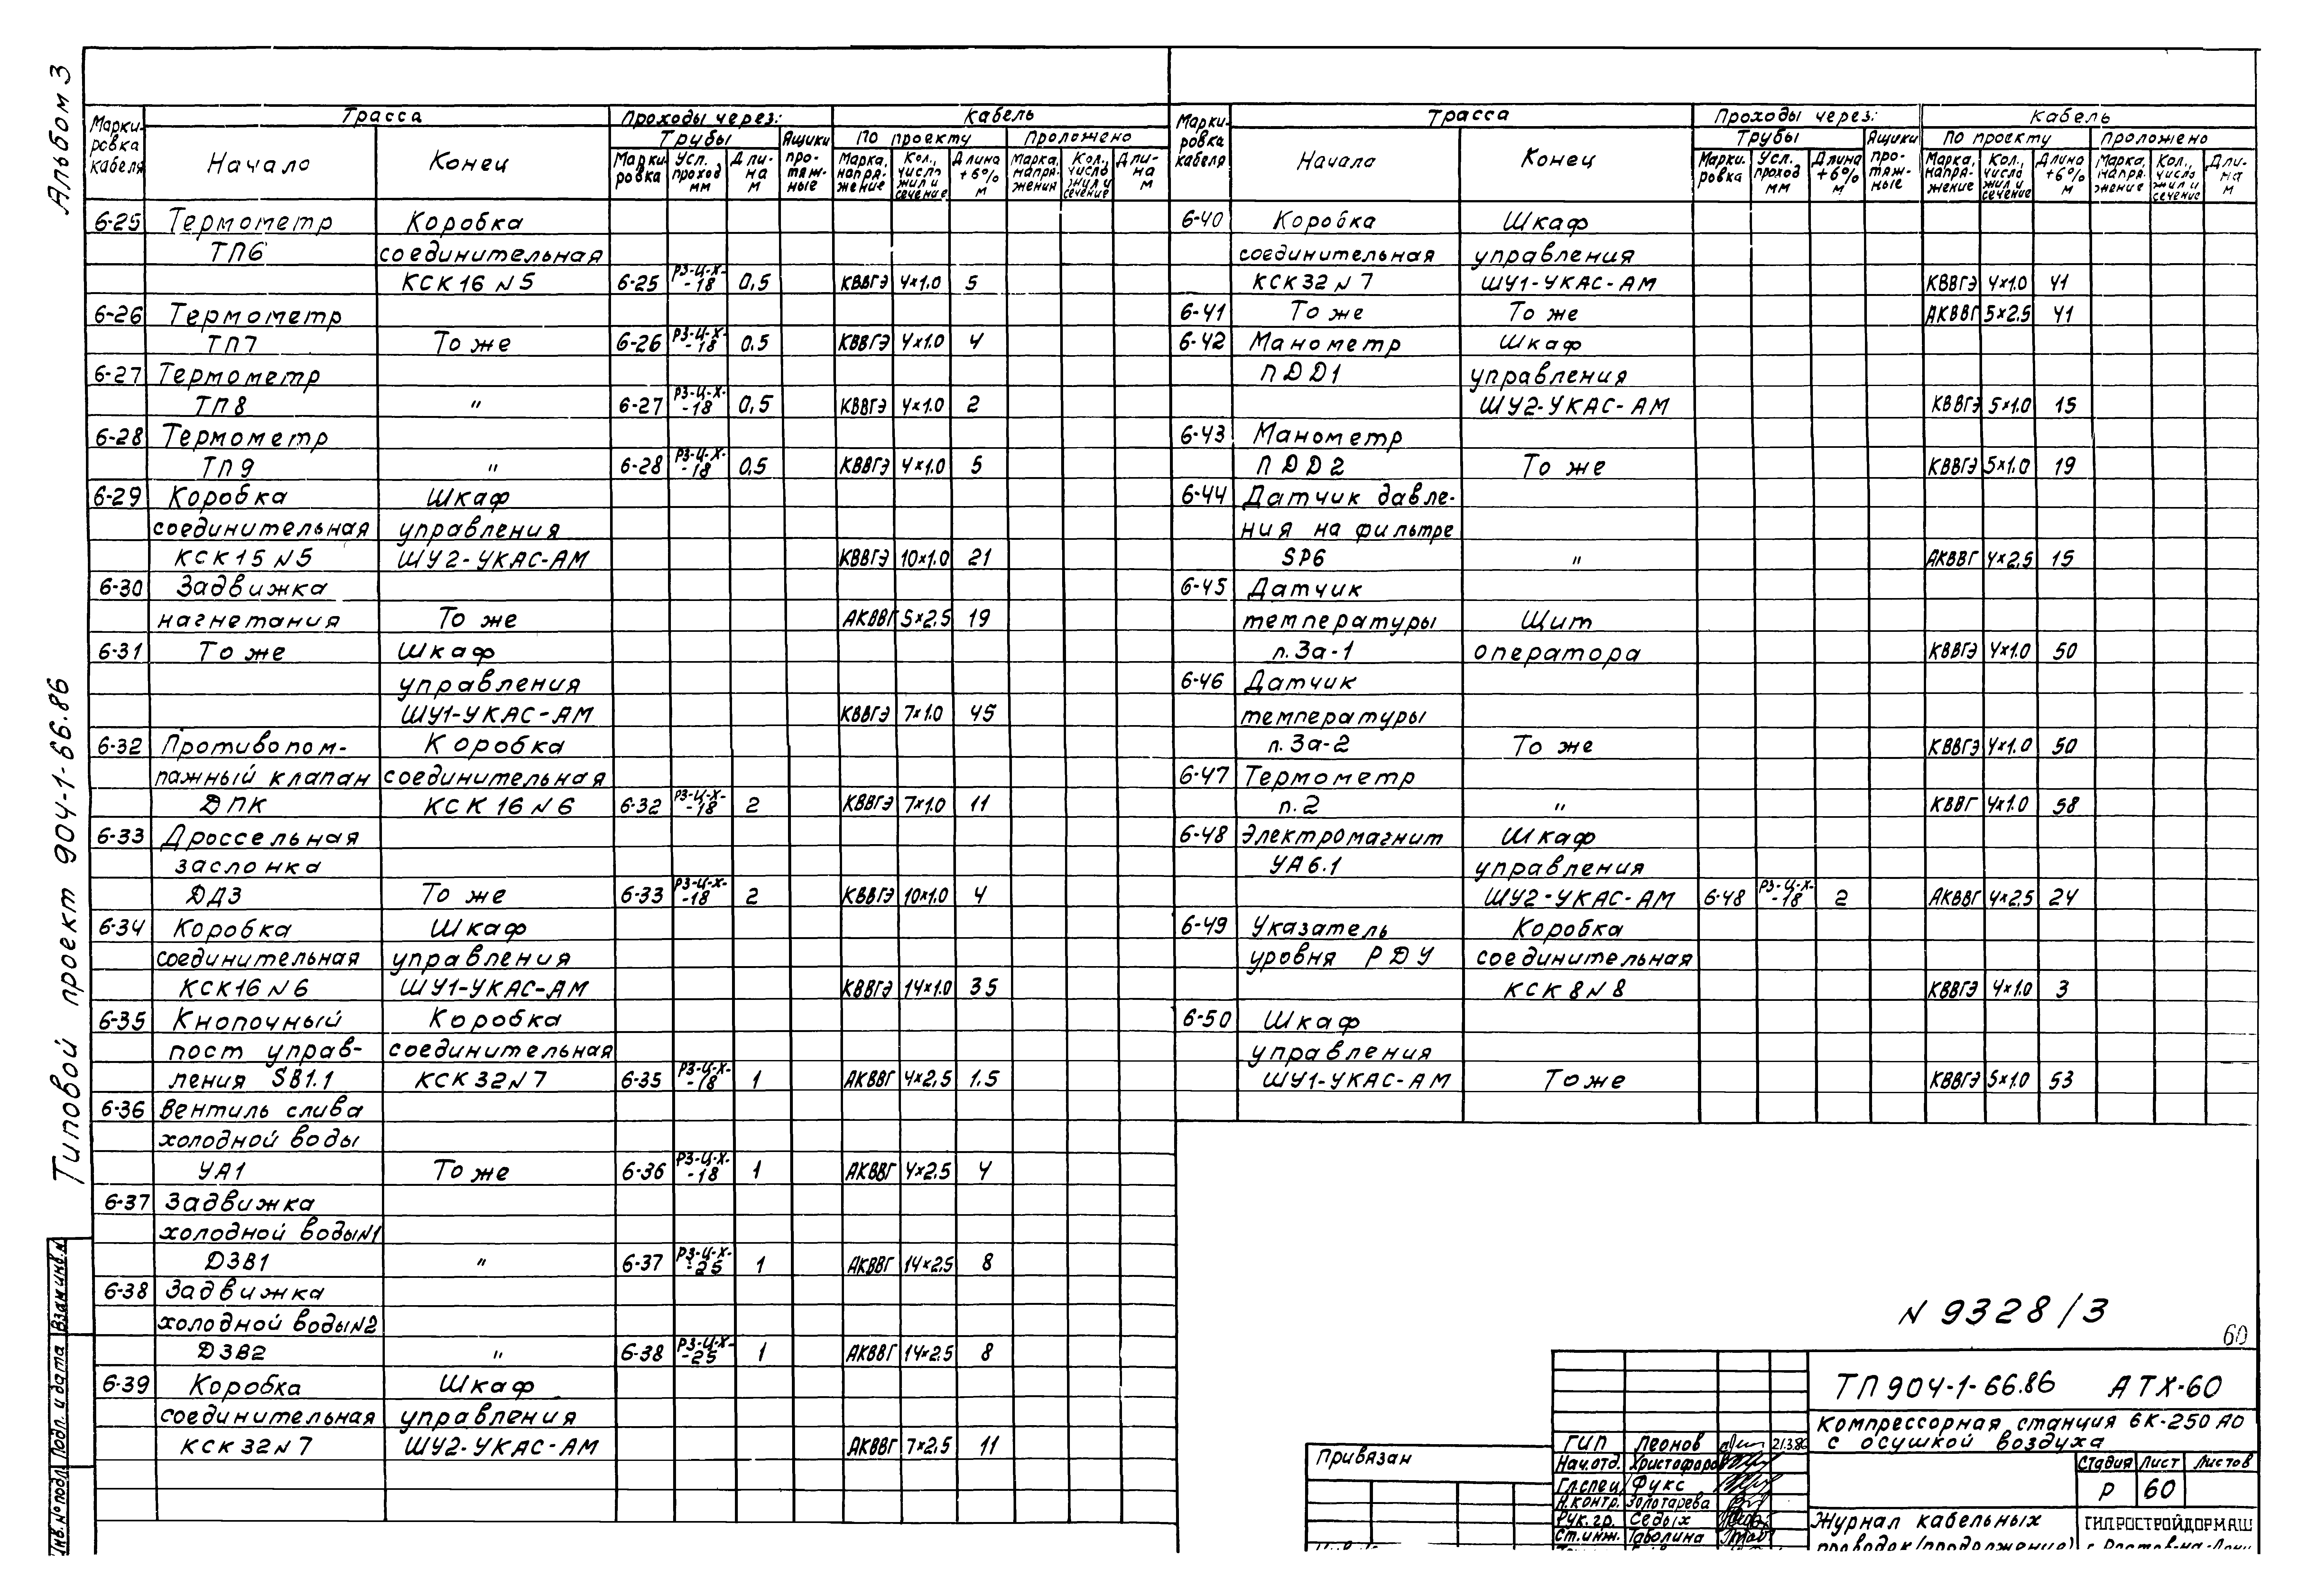 Альбом 3
Типовой проект 904-1-66.86
Марки-ровка кабеля | Трасса | Проходы через: | Кабель
Начало | Конец | Трубы | Ящики про-тяж-ные | По проекту | Проложено
Марки-ровка | Усл. проход мм | Дли-на м | Марка, напря-жение | Кол., число жил и сечение | Длина +6% м | Марка, напря-жения | Кол., число жил и сечение | Дли-на м
6-25 Термометр Коробка
ТП6 соединительная
КСК16 N5 6-25 РЗ-Ц-Х--18 0,5 КВВГЭ 4×1.0 5
6-26 Термометр
ТП7 То же 6-26 РЗ-Ц-Х--18 0.5 КВВГЭ 4×1.0 4
6-27 Термометр
ТП8 " 6-27 РЗ-Ц-Х--18 0,5 КВВГЭ 4×1.0 2
6-28 Термометр
ТП9 " 6-28 РЗ-Ц-Х--18 0.5 КВВГЭ 4×1.0 5
6-29 Коробка Шкаф
соединительная управления
КСК15 N5 ШУ2-УКАС-АМ КВВГЭ 10×1.0 21
6-30 Задвижка
нагнетания То же АКВВГ 5×2.5 19
6-31 То же Шкаф
управления
ШУ1-УКАС-АМ КВВГЭ 7×1.0 45
6-32 Противопом- Коробка
пажный клапан соединительная
ДПК КСК 16 N6 6-32 РЗ-Ц-Х--18 2 КВВГЭ 7×1.0 11
6-33 Дроссельная
заслонка
ДДЗ То же 6-33 РЗ-Ц-Х--18 2 КВВГЭ 10×1.0 4
6-34 Коробка Шкаф
соединительная управления
КСК16 N6 ШУ1-УКАС-АМ КВВГЭ 14×1.0 35
6-35 Кнопочный Коробка
пост управ- соединительная
ления SB1.1 КСК 32 N7 6-35 РЗ-Ц-Х--18 1 АКВВГ 4×2,5 1.5
6-36 Вентиль слива
холодной воды
УА1 То же 6-36 РЗ-Ц-Х--18 1 АКВВГ 4×2.5 4
6-37 Задвижка
холодной воды N1
ДЗВ1 " 6-37 РЗ-Ц-Х--25 1 АКВВГ 14×2,5 8
6-38 Задвижка
холодной воды N2
ДЗВ2 " 6-38 РЗ-Ц-Х--25 1 АКВВГ 14×2.5 8
6-39 Коробка Шкаф
соединительная управления
КСК 32 N7 ШУ2-УКАС-АМ АКВВГ 7×2.5 11
Марки-ровка кабеля | Трасса | Проходы через: | Кабель
Начала | Конец | Трубы | Ящики про-тяж-ные | По проекту | Проложено
Марки.ровка | Усл. проход мм | Длина +6% м | Марка, напря-жение | Кол., число жил и сечение | Длина +6% м | Марка, напря.жение | Кол., число жил и сечение | Дли-на м
6-40 Коробка Шкаф
соединительная управления
КСК 32 N7 ШУ1-УКАС-АМ КВВГЭ 4×1.0 41
6-41 То же То же АКВВГ 5×2.5 41
6-42 Манометр Шкаф
ПДД1 управления
ШУ2-УКАС-АМ КВВГЭ 5×1.0 15
6-43 Манометр
ПДД2 То же КВВГЭ 5×1.0 19
6-44 Датчик давле-
ния на фильтре
SP6 " АКВВГ 4×2,5 15
6-45 Датчик
температуры Щит
п. 3а-1 оператора КВВГЭ 4×1.0 50
6-46 Датчик
температуры
п. 3а-2 То же КВВГЭ 4×1.0 50
6-47 Термометр
п. 2 " КВВГ 4×1.0 58
6-48 Электромагнит Шкаф
УА6.1 управления
ШУ2-УКАС-АМ 6-48 РЗ-Ц-Х--18 2 АКВВГ 4×2.5 24
6-49 Указатель Коробка
уровня РДУ соединительная
КСК 8 N8 КВВГЭ 4×1.0 3
6-50 Шкаф
управления
ШУ1-УКАС-АМ То же КВВГЭ 5×1.0 53
N 9328/3
60
ТП 904-1-66.86 АТХ-60
Компрессорная станция 6К-250 АО
с осушкой воздуха
Привязан
ГИП Леонов 21.3.86
Нач.отд. Христофоров
Гл.спец. Фукс
Н.контр. Золотарева
Рук. гр. Седых
Ст.инж. Таболина
Стадия Лист Листов
Р 60
Журнал кабельных
проводок (продолжение)
ГИПРОСТРОЙДОРМАШ
г. Ростов-на-Дону
Инв.№ подл. Подп. и дата Взам.инв.N